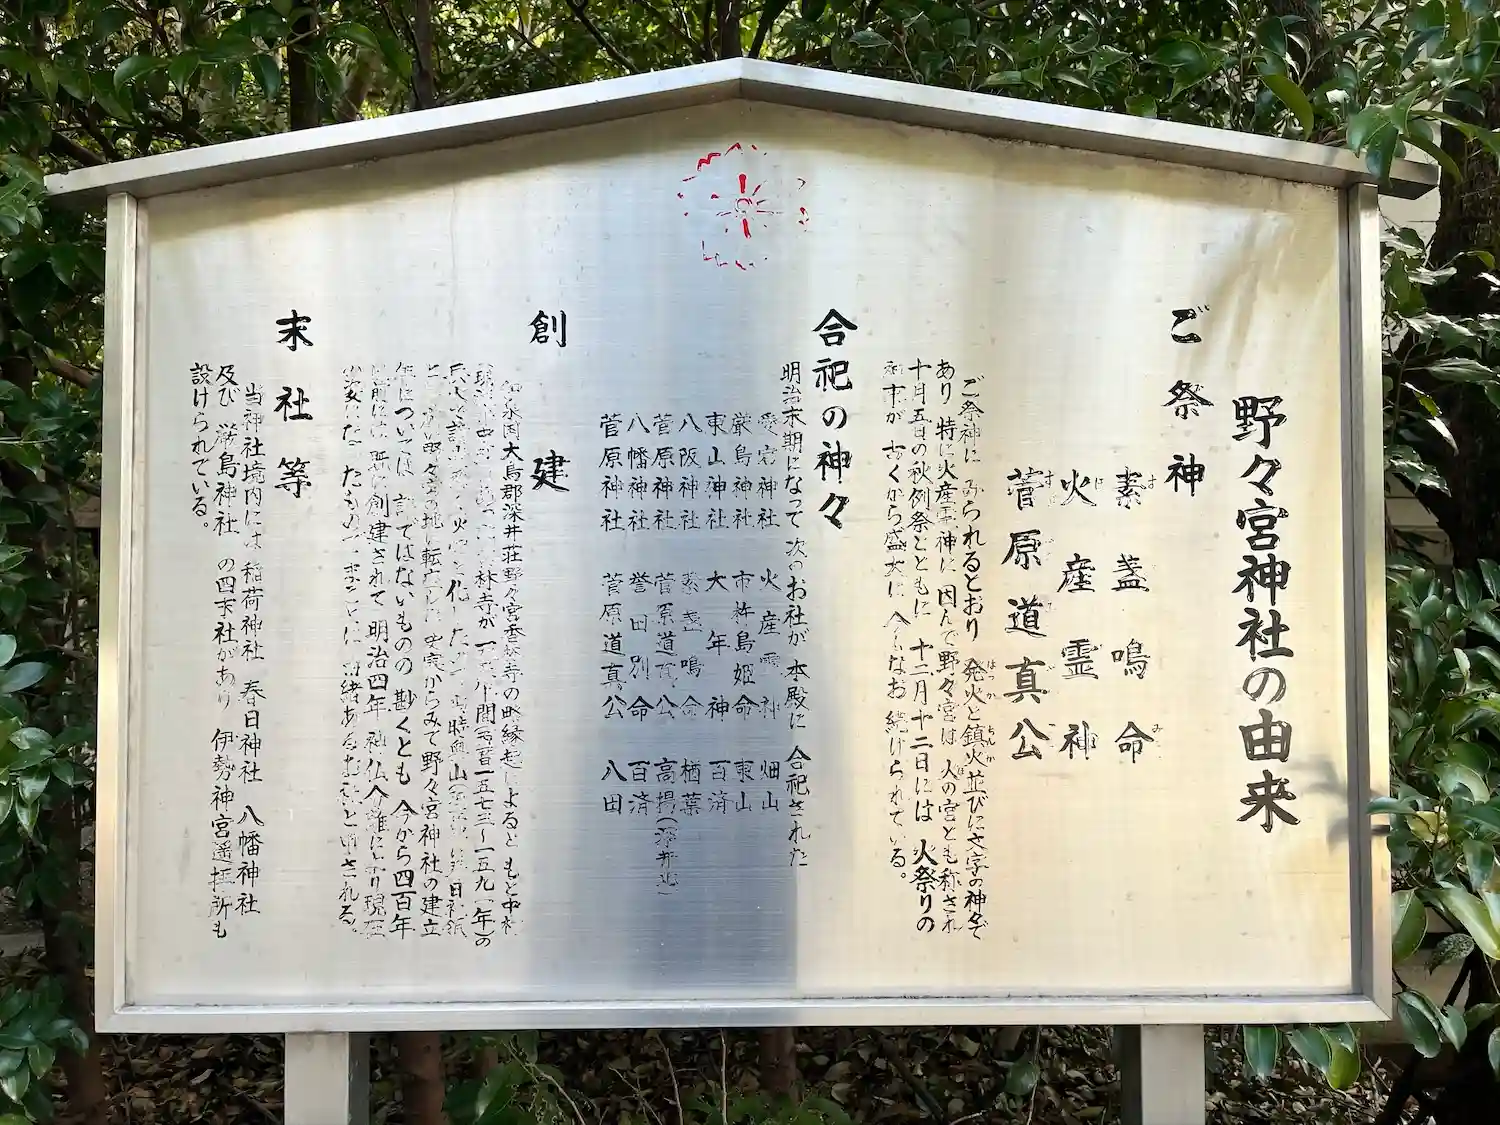 野々宮神社の由来
ご祭神
素盞鳴命
火産霊神
菅原道真公
ご祭神に みられるとおり 発火と鎮火並びに文字の神々で
あり 特に火産霊神に因んで野々宮は 火の宮とも称され
十月五日の秋例祭とともに 十二月十二日には 火祭りの
神事が 古くから盛大に 今もなお 続けられている。
合祀の神々
明治末期になって 次のお社が 本殿に 合祀された
愛宕神社 火産霊神 畑山
厳島神社 市杵島姫命 東山
東山神社 大年神 百済
八阪神社 素盞鳴命 楢葉
菅原神社 菅原道真公 高揚(深井北)
八幡神社 誉田別命 百済
菅原神社 菅原道真公 八田
創建
国大鳥郡深井荘野々宮香林寺の略縁起によると もと中村
林寺が 年間(西暦一五七三〜一五九一年)の
火 化した 当時奥山
の地に転 からみて野々宮神社の建立
年については 詳ではないものの 尠くとも 今から四百年
以前には 既に創建されて 明治四年 神仏分離により 現在
の姿になったもので まことに 由緒あるお社と申される。
末社等
当神社境内には 稲荷神社 春日神社 八幡神社
及び 厳島神社 の四末社があり 伊勢神宮遥拝所も
設けられている。